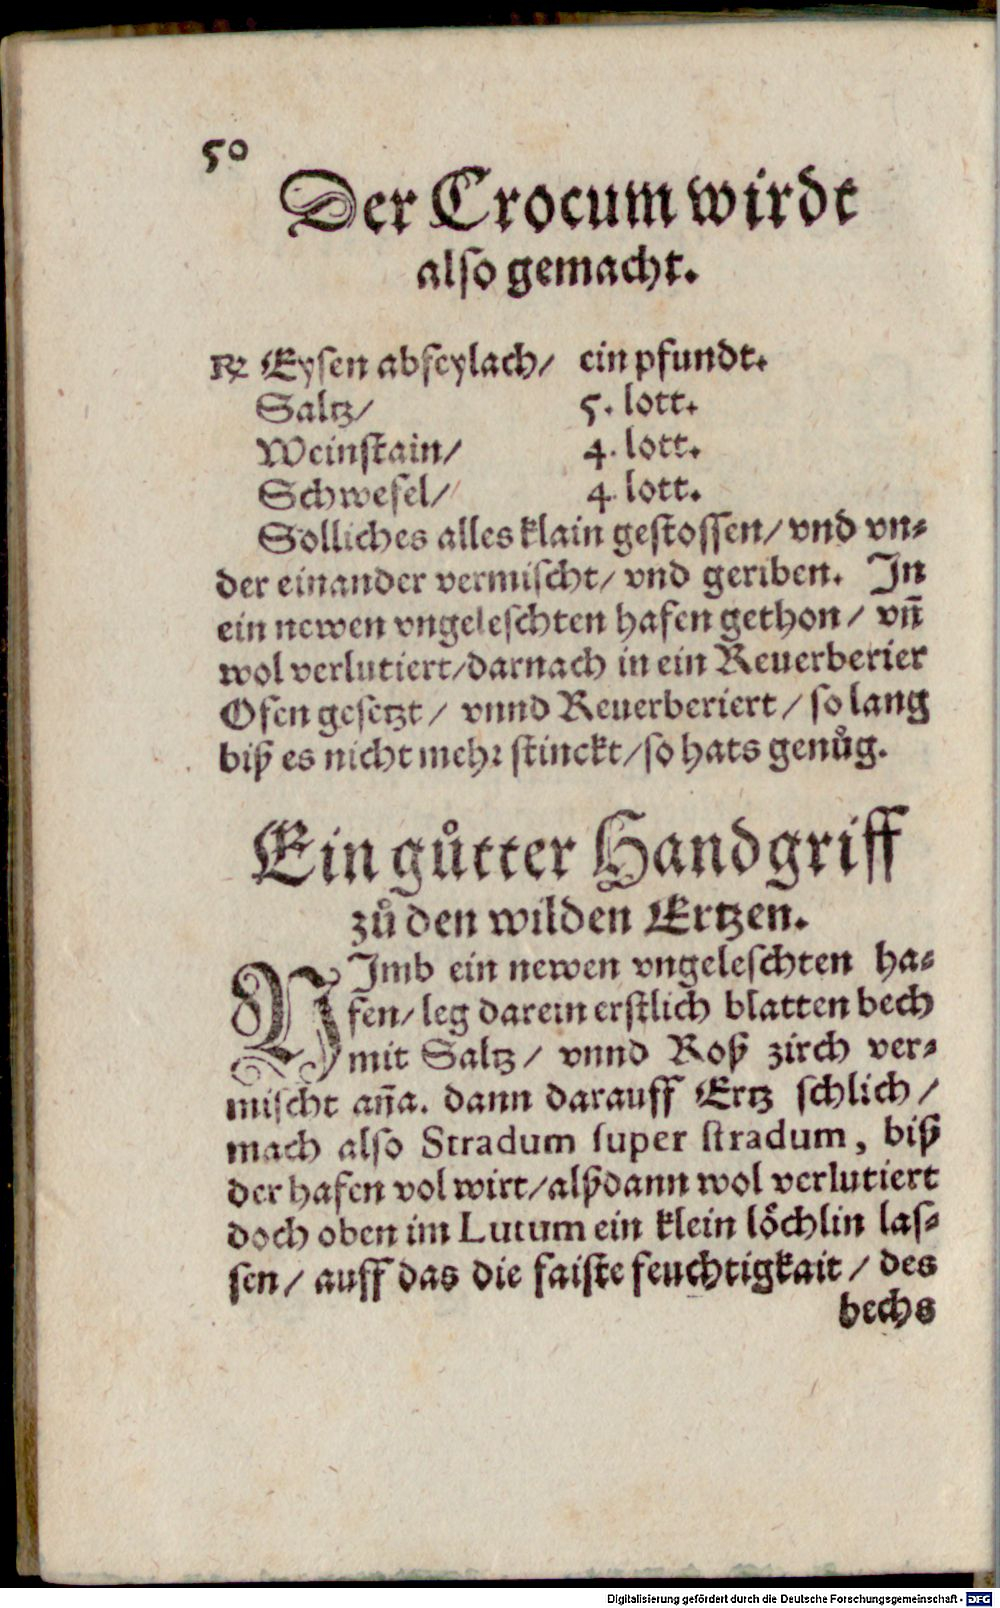 50
Der Crocum wirdt
also gemacht.
℞ Eysen abfeylach/ ein pfundt.
Saltz/ 5. lott.
Weinstain/ 4. lott.
Schwefel/ 4. lott.
Solliches alles klain gestossen/ vnd vn-
der einander vermischt/ vnd geriben. In
ein newen vngeleschten hafen gethon/ vñ
wol verlutiert/ darnach in ein Reuerberier
Ofen gesetzt/ vnnd Reuerberiert/ so lang
biß es nicht mehr stinckt/ so hats genůg.
Ein gůtter Handgriff
zů den wilden Ertzen.
NImb ein newen vngeleschten ha-
fen/ leg darein erstlich blatten bech
mit Saltz/ vnnd Roß zirch ver-
mischt an̄a. dann darauff Ertz schlich/
mach also Stradum super stradum, biß
der hafen vol wirt/ alßdann wol verlutiert
doch oben im Lutum ein klein löchlin las-
sen/ auff das die faiste feuchtigkait/ des
bechs
Digitalisierung gefördert durch die Deutsche Forschungsgemeinschaft - DFG